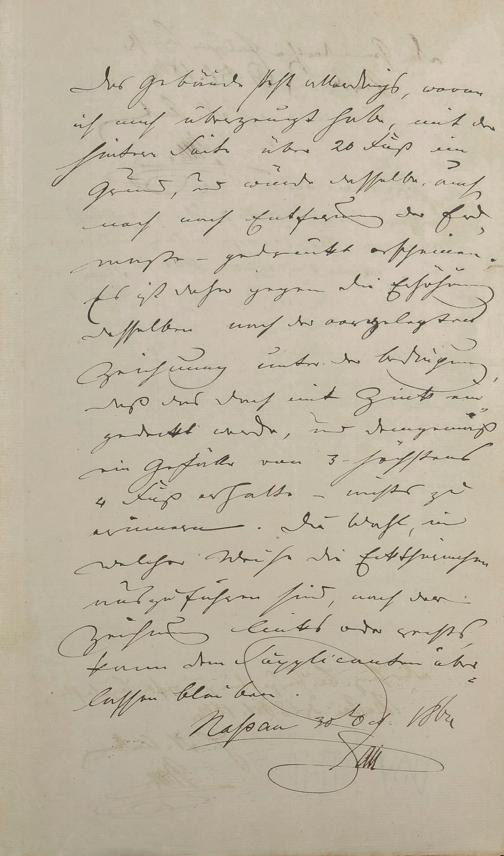 Das Gebäude steht allerdings, wovon
ich mich überzeugt habe, mit der
hintern Seite über 20 Fuß im
Grund, und würde dasselbe auch
noch nach Entfernung der Erd-
masse - gedrückt erscheinen.
Es ist daher gegen die Erhöhung
desselben nach der vorgelegten
Zeichnung unter der Bedingung,
daß das Dach mit Zink ein-
gedeckt werde, und demgemäß
ein Gefälle von 3 höchstens
4 Fuß erhalte - nichts zu
erinnern. Die Wahl, in
welcher Weise die
auszuführen sind, nach der
Zeichnung links oder rechts,
kann dem Supplicanten über-
lassen bleiben.
Nassau 30 Oct.